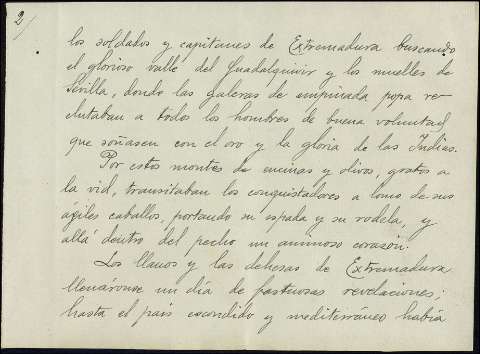 2/
los soldados y capitanes de Extremadura buscando
el glorioso valle del Guadalquivir y los muelles de
Sevilla, donde las galeras de empinada popa re-
clutaban a todos los hombres de buena voluntad
que soñasen con el oro y la gloria de las Indias.
Por estos montes de encinas y olivos, gratos a
la vid, transitaban los conquistadores a lomo de sus
ágiles caballos, portando su espada y su rodela, y
allá dentro del pecho un animoso corazón.
Los llanos y las dehesas de Extremadura
llenáronse un día de fastuosas revelaciones;
hasta el país escondido y mediterráneo había